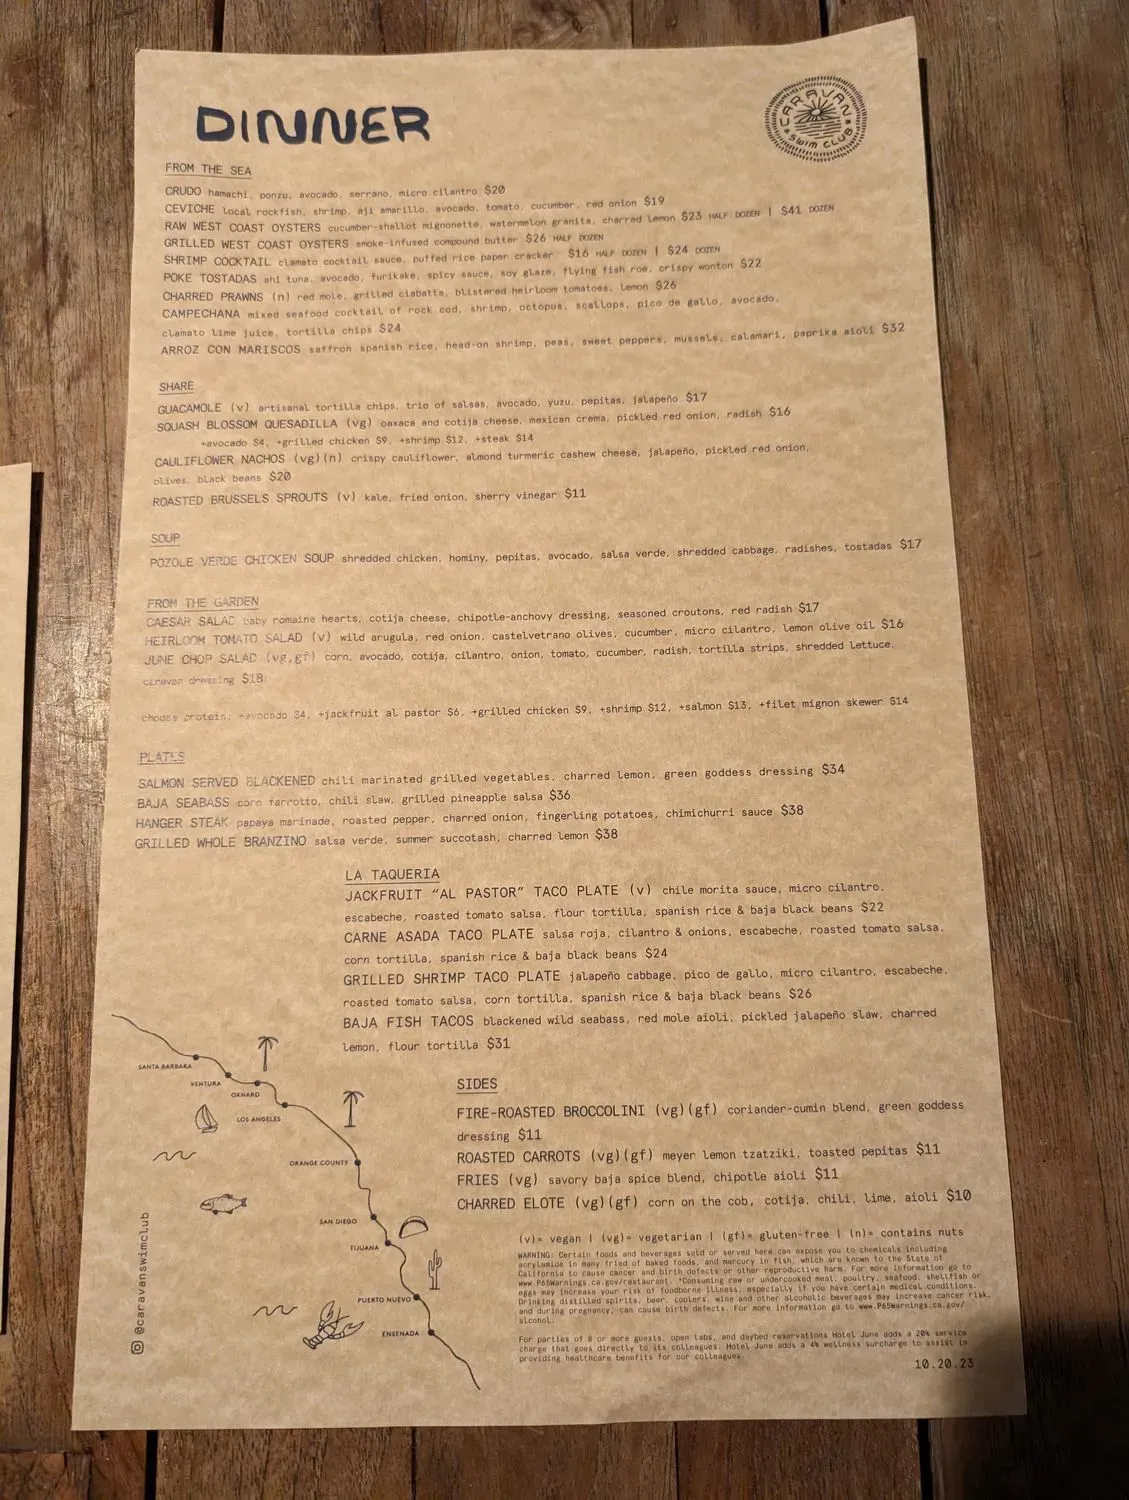 DINNER
CARAVAN
SWIM CLUB
FROM THE SEA
CRUDO hamachi, ponzu, avocado, serrano, micro cilantro $20
CEVICHE local rockfish, shrimp, aji amarillo, avocado, tomato, cucumber, red onion $19
RAW WEST COAST OYSTERS cucumber-shallot mignonette, watermelon granita, charred lemon $23 HALF DOZEN | $41 DOZEN
GRILLED WEST COAST OYSTERS smoke-infused compound butter $26 HALF DOZEN
SHRIMP COCKTAIL clamato cocktail sauce, puffed rice paper cracker $16 HALF DOZEN | $24 DOZEN
POKE TOSTADAS ahi tuna, avocado, furikake, spicy sauce, soy glaze, flying fish roe, crispy wonton $22
CHARRED PRAWNS (n) red mole, grilled ciabatta, blistered heirloom tomatoes, lemon $26
CAMPECHANA mixed seafood cocktail of rock cod, shrimp, octopus, scallops, pico de gallo, avocado,
clamato lime juice, tortilla chips $24
ARROZ CON MARISCOS saffron spanish rice, head-on shrimp, peas, sweet peppers, mussels, calamari, paprika aioli $32
SHARE
GUACAMOLE (v) artisanal tortilla chips, trio of salsas, avocado, yuzu, pepitas, jalapeño $17
SQUASH BLOSSOM QUESADILLA (vg) oaxaca and cotija cheese, mexican crema, pickled red onion, radish $16
+avocado $4, +grilled chicken $9, +shrimp $12, +steak $14
CAULIFLOWER NACHOS (vg)(n) crispy cauliflower, almond turmeric cashew cheese, jalapeño, pickled red onion,
olives, black beans $20
ROASTED BRUSSELS SPROUTS (v) kale, fried onion, sherry vinegar $11
SOUP
POZOLE VERDE CHICKEN SOUP shredded chicken, hominy, pepitas, avocado, salsa verde, shredded cabbage, radishes, tostadas $17
FROM THE GARDEN
CAESAR SALAD baby romaine hearts, cotija cheese, chipotle-anchovy dressing, seasoned croutons, red radish $17
HEIRLOOM TOMATO SALAD (v) wild arugula, red onion, castelvetrano olives, cucumber, micro cilantro, lemon olive oil $16
JUNE CHOP SALAD (vg,gf) corn, avocado, cotija, cilantro, onion, tomato, cucumber, radish, tortilla strips, shredded lettuce,
caravan dressing $18
choose protein: +avocado $4, +jackfruit al pastor $6, +grilled chicken $9, +shrimp $12, +salmon $13, +filet mignon skewer $14
PLATES
SALMON SERVED BLACKENED chili marinated grilled vegetables, charred lemon, green goddess dressing $34
BAJA SEABASS corn farrotto, chili slaw, grilled pineapple salsa $36
HANGER STEAK papaya marinade, roasted pepper, charred onion, fingerling potatoes, chimichurri sauce $38
GRILLED WHOLE BRANZINO salsa verde, summer succotash, charred lemon $38
LA TAQUERIA
JACKFRUIT “AL PASTOR” TACO PLATE (v) chile morita sauce, micro cilantro,
escabeche, roasted tomato salsa, flour tortilla, spanish rice & baja black beans $22
CARNE ASADA TACO PLATE salsa roja, cilantro & onions, escabeche, roasted tomato salsa,
corn tortilla, spanish rice & baja black beans $24
GRILLED SHRIMP TACO PLATE jalapeño cabbage, pico de gallo, micro cilantro, escabeche,
roasted tomato salsa, corn tortilla, spanish rice & baja black beans $26
BAJA FISH TACOS blackened wild seabass, red mole aioli, pickled jalapeño slaw, charred
lemon, flour tortilla $31
SIDES
FIRE-ROASTED BROCCOLINI (vg)(gf) coriander-cumin blend, green goddess
dressing $11
ROASTED CARROTS (vg)(gf) meyer lemon tzatziki, toasted pepitas $11
FRIES (vg) savory baja spice blend, chipotle aioli $11
CHARRED ELOTE (vg)(gf) corn on the cob, cotija, chili, lime, aioli $10
(v)= vegan | (vg)= vegetarian | (gf)= gluten-free | (n)= contains nuts
WARNING: Certain foods and beverages sold or served here can expose you to chemicals including
acrylamide in many fried of baked foods, and mercury in fish, which are known to the State of
California to cause cancer and birth defects or other reproductive harm. For more information go to
www.P65Warnings.ca.gov/restaurant. *Consuming raw or undercooked meat, poultry, seafood, shellfish or
eggs may increase your risk of foodborne illness, especially if you have certain medical conditions.
Drinking distilled spirits, beer, coolers, wine and other alcoholic beverages may increase cancer risk,
and during pregnancy, can cause birth defects. For more information go to www.P65Warnings.ca.gov/
alcohol.
For parties of 8 or more guests, open tabs, and daybed reservations Hotel June adds a 20% service
charge that goes directly to its colleagues. Hotel June adds a 4% wellness surcharge to assist in
providing healthcare benefits for our colleagues.
10.20.23
SANTA BARBARA
VENTURA
OXNARD
LOS ANGELES
ORANGE COUNTY
SAN DIEGO
TIJUANA
PUERTO NUEVO
ENSENADA
@caravanswimclub